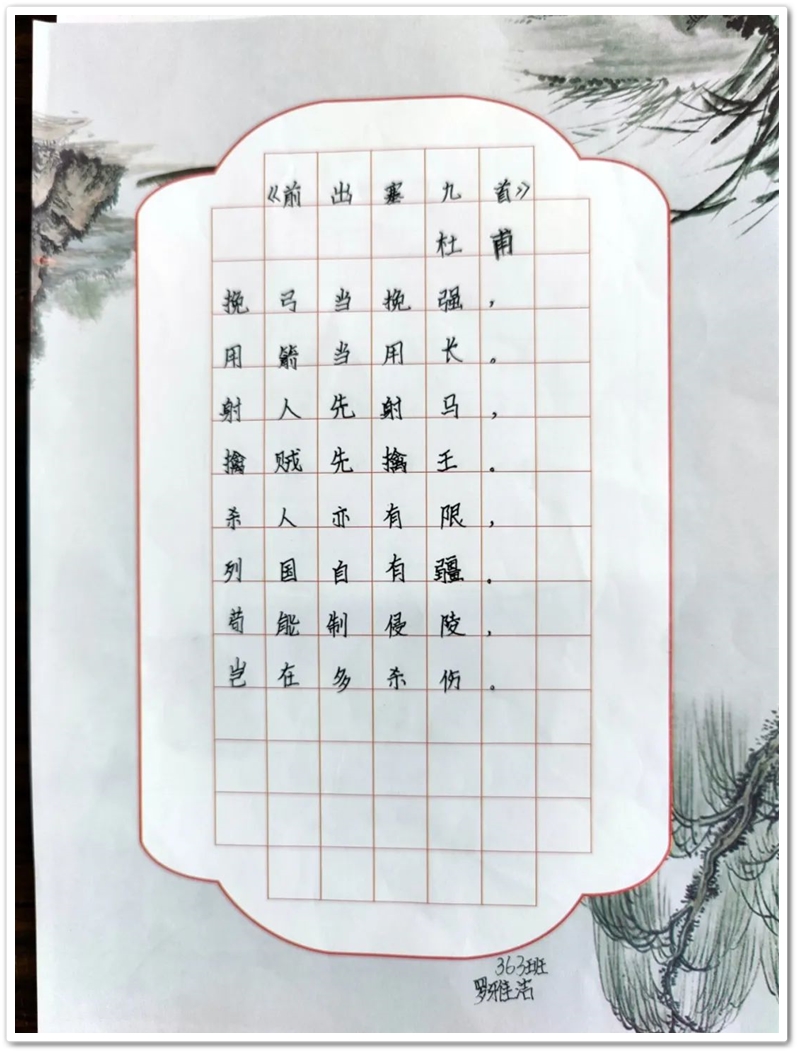 《前出塞九首》
杜甫
挽弓当挽强，
用箭当用长。
射人先射马，
擒贼先擒王。
杀人亦有限，
列国自有疆。
苟能制侵陵，
岂在多杀伤。
363班
罗雅洁